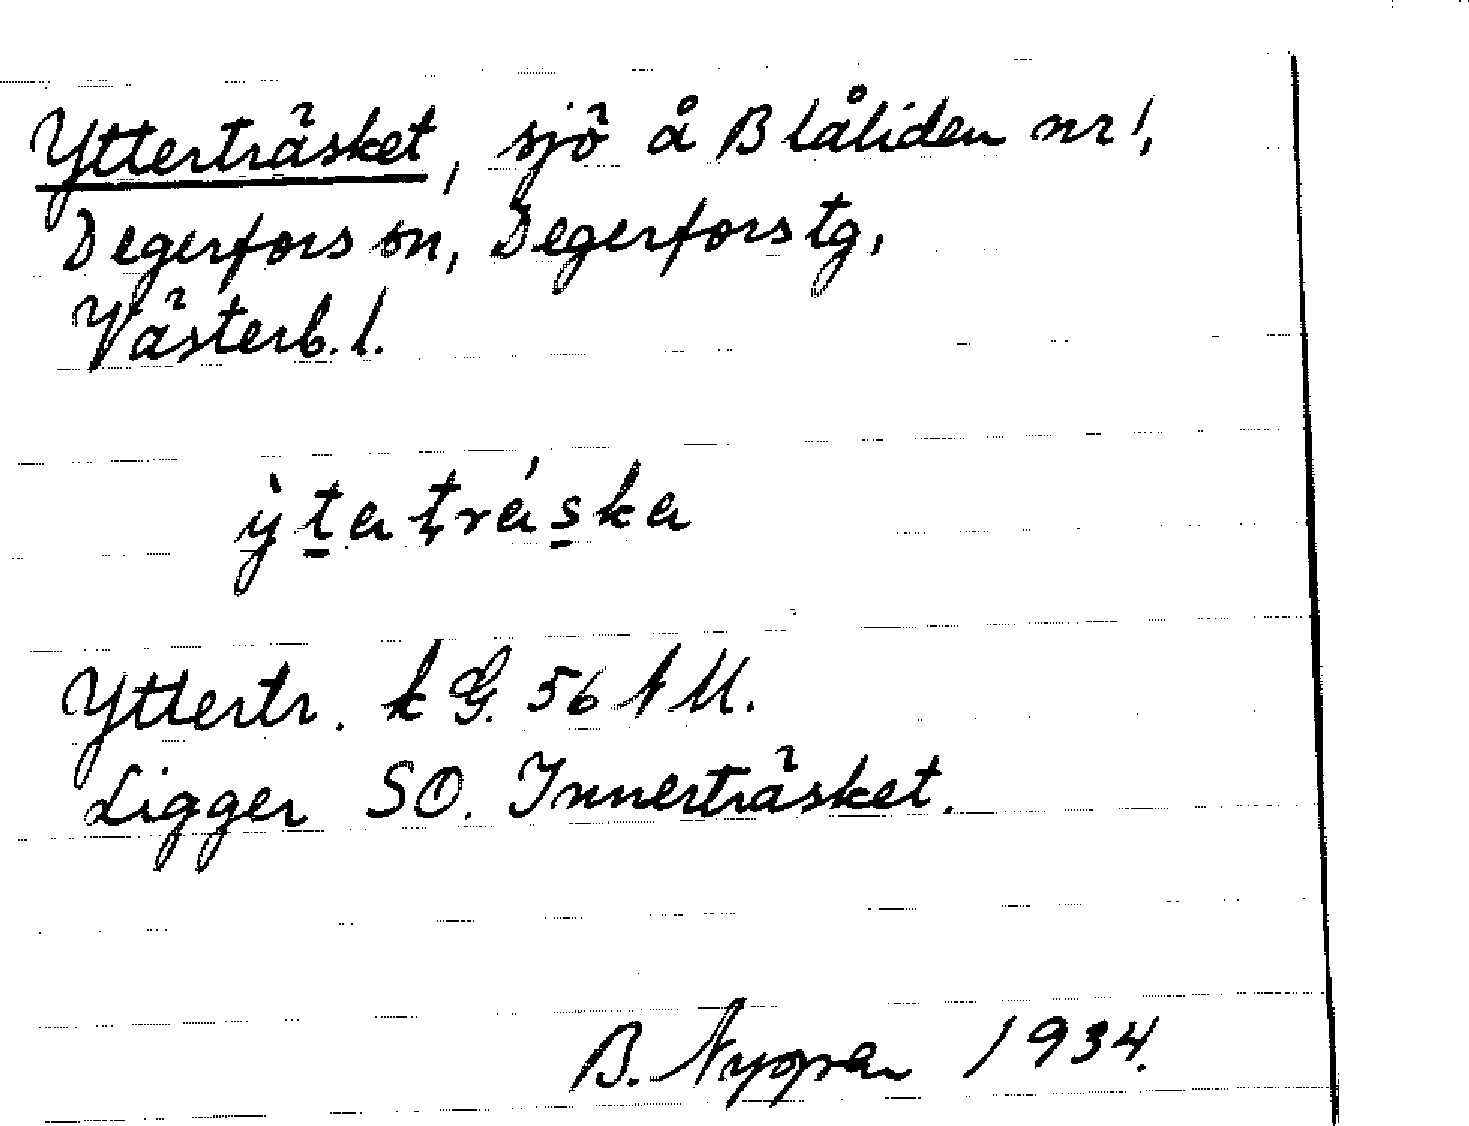 Ytterträsket, sjö å Blåliden nr 1,
Degerfors sn, Degerfors tg,
Västerb. l.
ỳt̲atrá̵s̲ka
Yttertr. k G. 56 NU.
Ligger SO. Innerträsket.
B. 1934.